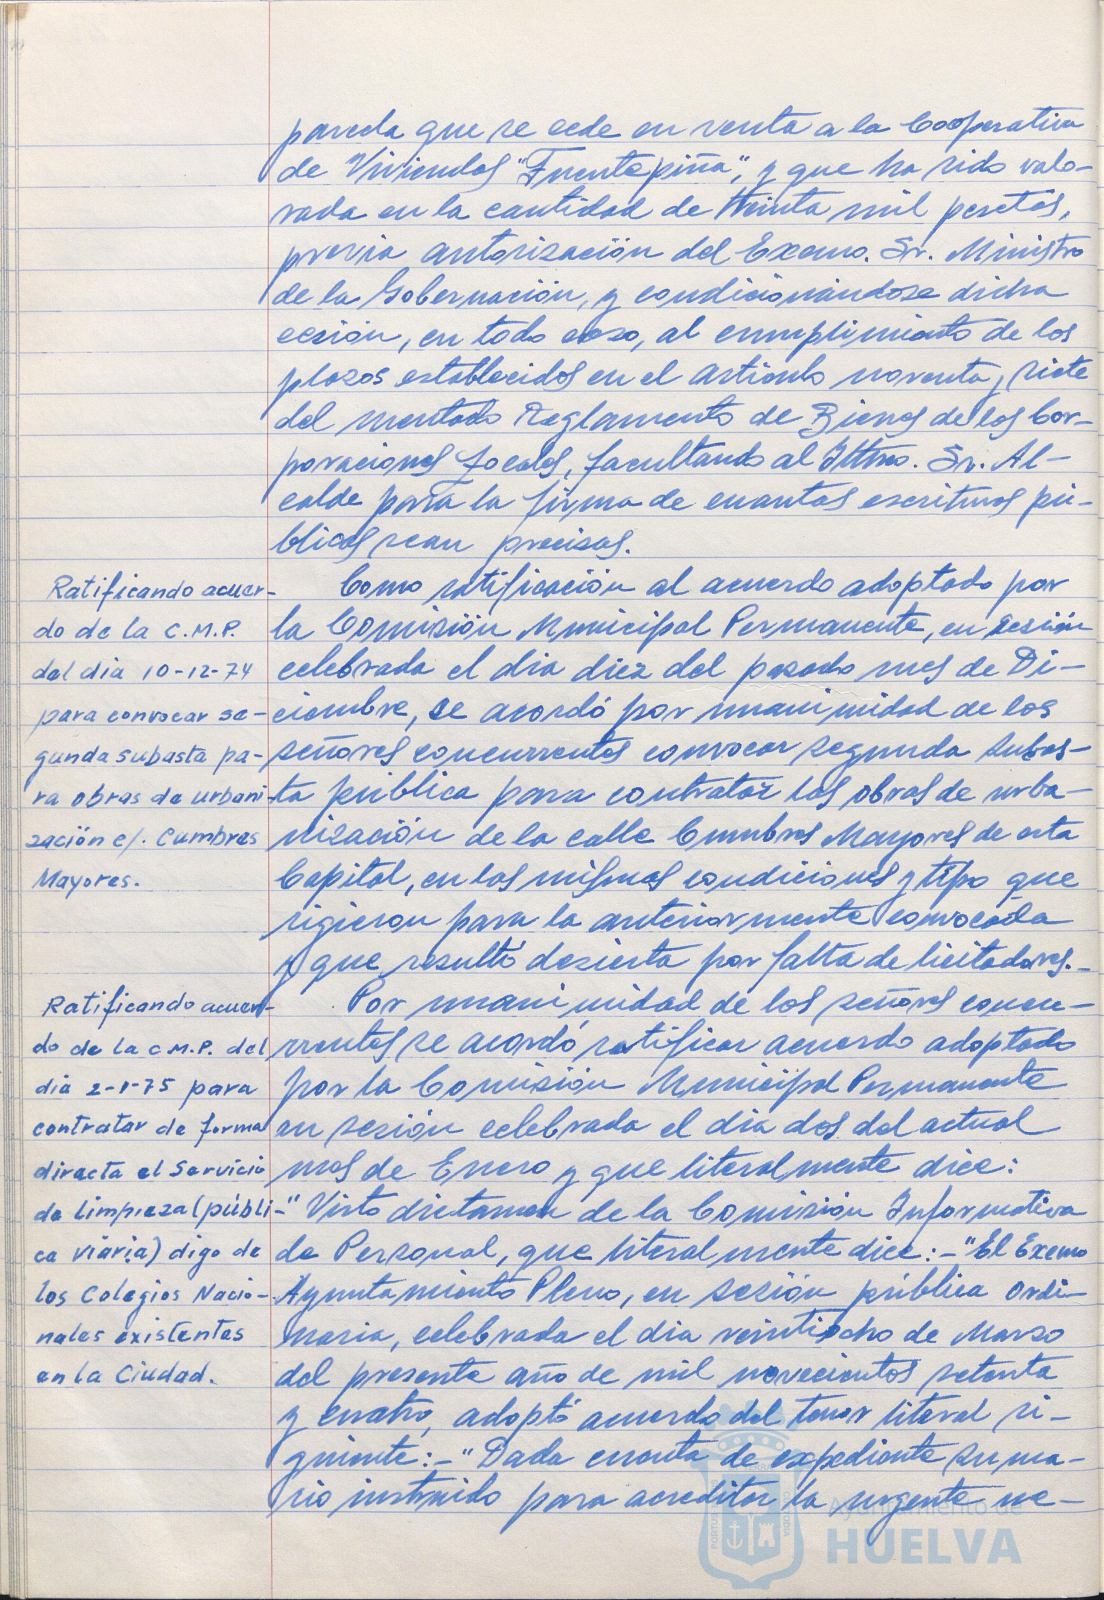 parcela que se cede en venta a la Cooperativa
de Viviendas "Fuentepiña", y que ha sido valo-
rada en la cantidad de treinta mil pesetas,
previa autorización del Excmo. Sr. Ministro
de la Gobernación, y condicionándose dicha
cesión, en todo caso, al cumplimiento de los
plazos establecidos en el artículo noventa y siete
del mentado Reglamento de Bienes de las Cor-
poraciones Locales, facultando al Iltmo. Sr. Al-
calde para la firma de cuantas escrituras pú-
blicas sean precisas.
Ratificando acuer-
do de la C.M.P.
del dia 10-12-74
para convocar se-
gunda subasta pa-
ra obras de urbani-
zación c/. Cumbres
Mayores.
Como ratificación al acuerdo adoptado por
la Comisión Municipal Permanente, en sesión
celebrada el dia diez del pasado mes de Di-
ciembre, se acordó por unanimidad de los
señores concurrentes convocar segunda subas-
ta pública para contratar las obras de urba-
nización de la calle Cumbres Mayores de esta
Capital, en las mismas condiciones y tipo que
rigieron para la anteriormente convocada
y que resultó desierta por falta de licitadores.-
Ratificando acuer-
do de la C.M.P. del
dia 2-1-75 para
contratar de forma
directa el Servicio
de limpieza (públi-
ca viaria) digo de
los Colegios Nacio-
nales existentes
en la Ciudad.
Por unanimidad de los señores concu-
rrentes se acordó ratificar acuerdo adoptado
por la Comisión Municipal Permanente
en sesión celebrada el dia dos del actual
mes de Enero y que literalmente dice:
"Visto dictamen de la Comisión Informativa
de Personal, que literalmente dice:-"El Excmo
Ayuntamiento Pleno, en sesión pública Ordi-
naria, celebrada el dia veintiocho de Marzo
del presente año de mil novecientos setenta
y cuatro, adoptó acuerdo del tenor literal si-
guiente:-"Dada cuenta de expediente suma-
rio instruido para acreditar la urgente ne-
Ayuntamiento de
HUELVA